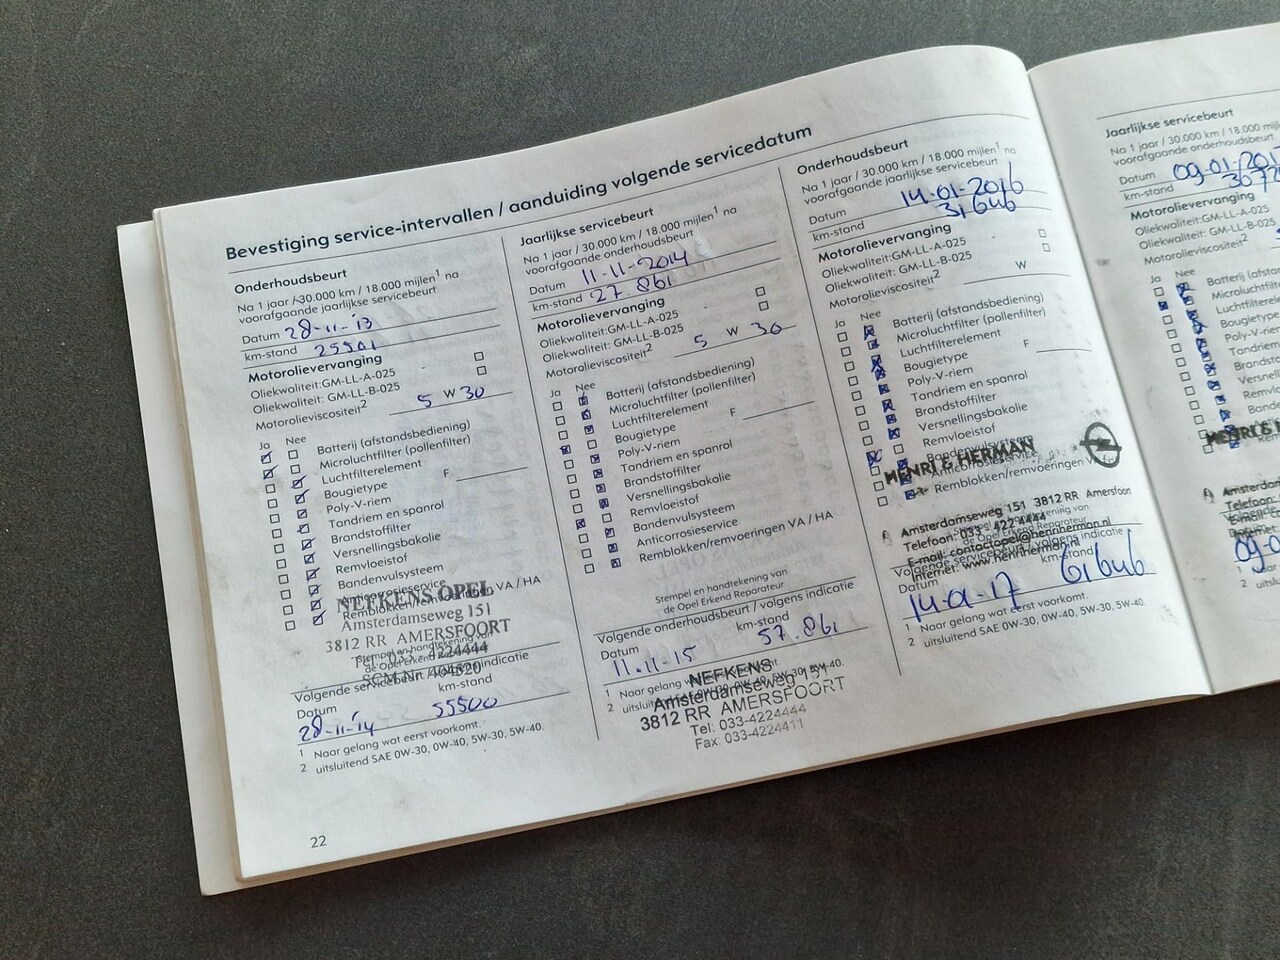 Bevestiging service-intervallen / aanduiding volgende servicedatum
Onderhoudsbeurt
Na 1 jaar / 30.000 km / 18.000 mijlen¹ na
voorafgaande jaarlijkse servicebeurt
Datum 28-11-'13
km-stand 25501
Motorolievervanging
Oliekwaliteit: GM-LL-A-025
Oliekwaliteit: GM-LL-B-025
Motorolieviscositeit² 5 W 30
Ja Nee
Batterij (afstandsbediening)
Microluchtfilter (pollenfilter)
Luchtfilterelement
Bougietype F
Poly-V-riem
Tandriem en spanrol
Brandstoffilter
Versnellingsbakolie
Remvloeistof
Bandenvulsysteem
Anticorrosieservice
Remblokken/remvoeringen VA / HA
NEFKENS OPEL
Amsterdamseweg 151
3812 RR AMERSFOORT
Tel. 033-4224444
Stempel en handtekening van
de Opel Erkend Reparateur
Volgende servicebeurt / volgens indicatie
Datum km-stand
28-11-'14 55500
1 Naar gelang wat eerst voorkomt.
2 uitsluitend SAE 0W-30, 0W-40, 5W-30, 5W-40.
22
Jaarlijkse servicebeurt
Na 1 jaar / 30.000 km / 18.000 mijlen¹ na
voorafgaande onderhoudsbeurt
Datum 11-11-2014
km-stand 27.861
Motorolievervanging
Oliekwaliteit: GM-LL-A-025
Oliekwaliteit: GM-LL-B-025
Motorolieviscositeit² 5 W 30
Ja Nee
Batterij (afstandsbediening)
Microluchtfilter (pollenfilter)
Luchtfilterelement
Bougietype F
Poly-V-riem
Tandriem en spanrol
Brandstoffilter
Versnellingsbakolie
Remvloeistof
Bandenvulsysteem
Anticorrosieservice
Remblokken/remvoeringen VA / HA
Stempel en handtekening van
de Opel Erkend Reparateur
Volgende onderhoudsbeurt / volgens indicatie
Datum km-stand
11.11-15 57.861
1 Naar gelang wat eerst voorkomt.
2 uitsluitend SAE 0W-30, 0W-40, 5W-30, 5W-40.
NEFKENS
Amsterdamseweg 151
3812 RR AMERSFOORT
Tel: 033-4224444
Fax: 033-4224411
Onderhoudsbeurt
Na 1 jaar / 30.000 km / 18.000 mijlen¹ na
voorafgaande jaarlijkse servicebeurt
Datum 14-01-2016
km-stand 31646
Motorolievervanging
Oliekwaliteit: GM-LL-A-025
Oliekwaliteit: GM-LL-B-025
Motorolieviscositeit² W
Ja Nee
Batterij (afstandsbediening)
Microluchtfilter (pollenfilter)
Luchtfilterelement
Bougietype F
Poly-V-riem
Tandriem en spanrol
Brandstoffilter
Versnellingsbakolie
Remvloeistof
Bandenvulsysteem
Anticorrosieservice
Remblokken/remvoeringen
HENRI & HERMAN
Amsterdamseweg 151 3812 RR Amersfoort
Telefoon: 033 - 422 4444
E-mail: contactopel@henriherman.nl
Internet: www.henriherman.nl
Stempel en handtekening van
de Opel Erkend Reparateur
Volgende servicebeurt / volgens indicatie
Datum km-stand
14-01-17 61646
1 Naar gelang wat eerst voorkomt.
2 uitsluitend SAE 0W-30, 0W-40, 5W-30, 5W-40.
Jaarlijkse servicebeurt
Na 1 jaar / 30.000 km / 18.000
voorafgaande onderhoudsbeurt
Datum 09-01-2017
km-stand
Motorolievervanging
Oliekwaliteit: GM-LL-A-025
Oliekwaliteit: GM-LL-B-025
Motorolieviscositeit²
Ja Nee
Batterij (afstan
Microluchtfilter
Luchtfiltere
Bougietype
Poly-V-riem
Tandriem
Brandstof
Versnell
Remvloe
Bande
HENRI &
Amsterdam
Telefoon:
E-mail:
Internet:
Datum
1
2